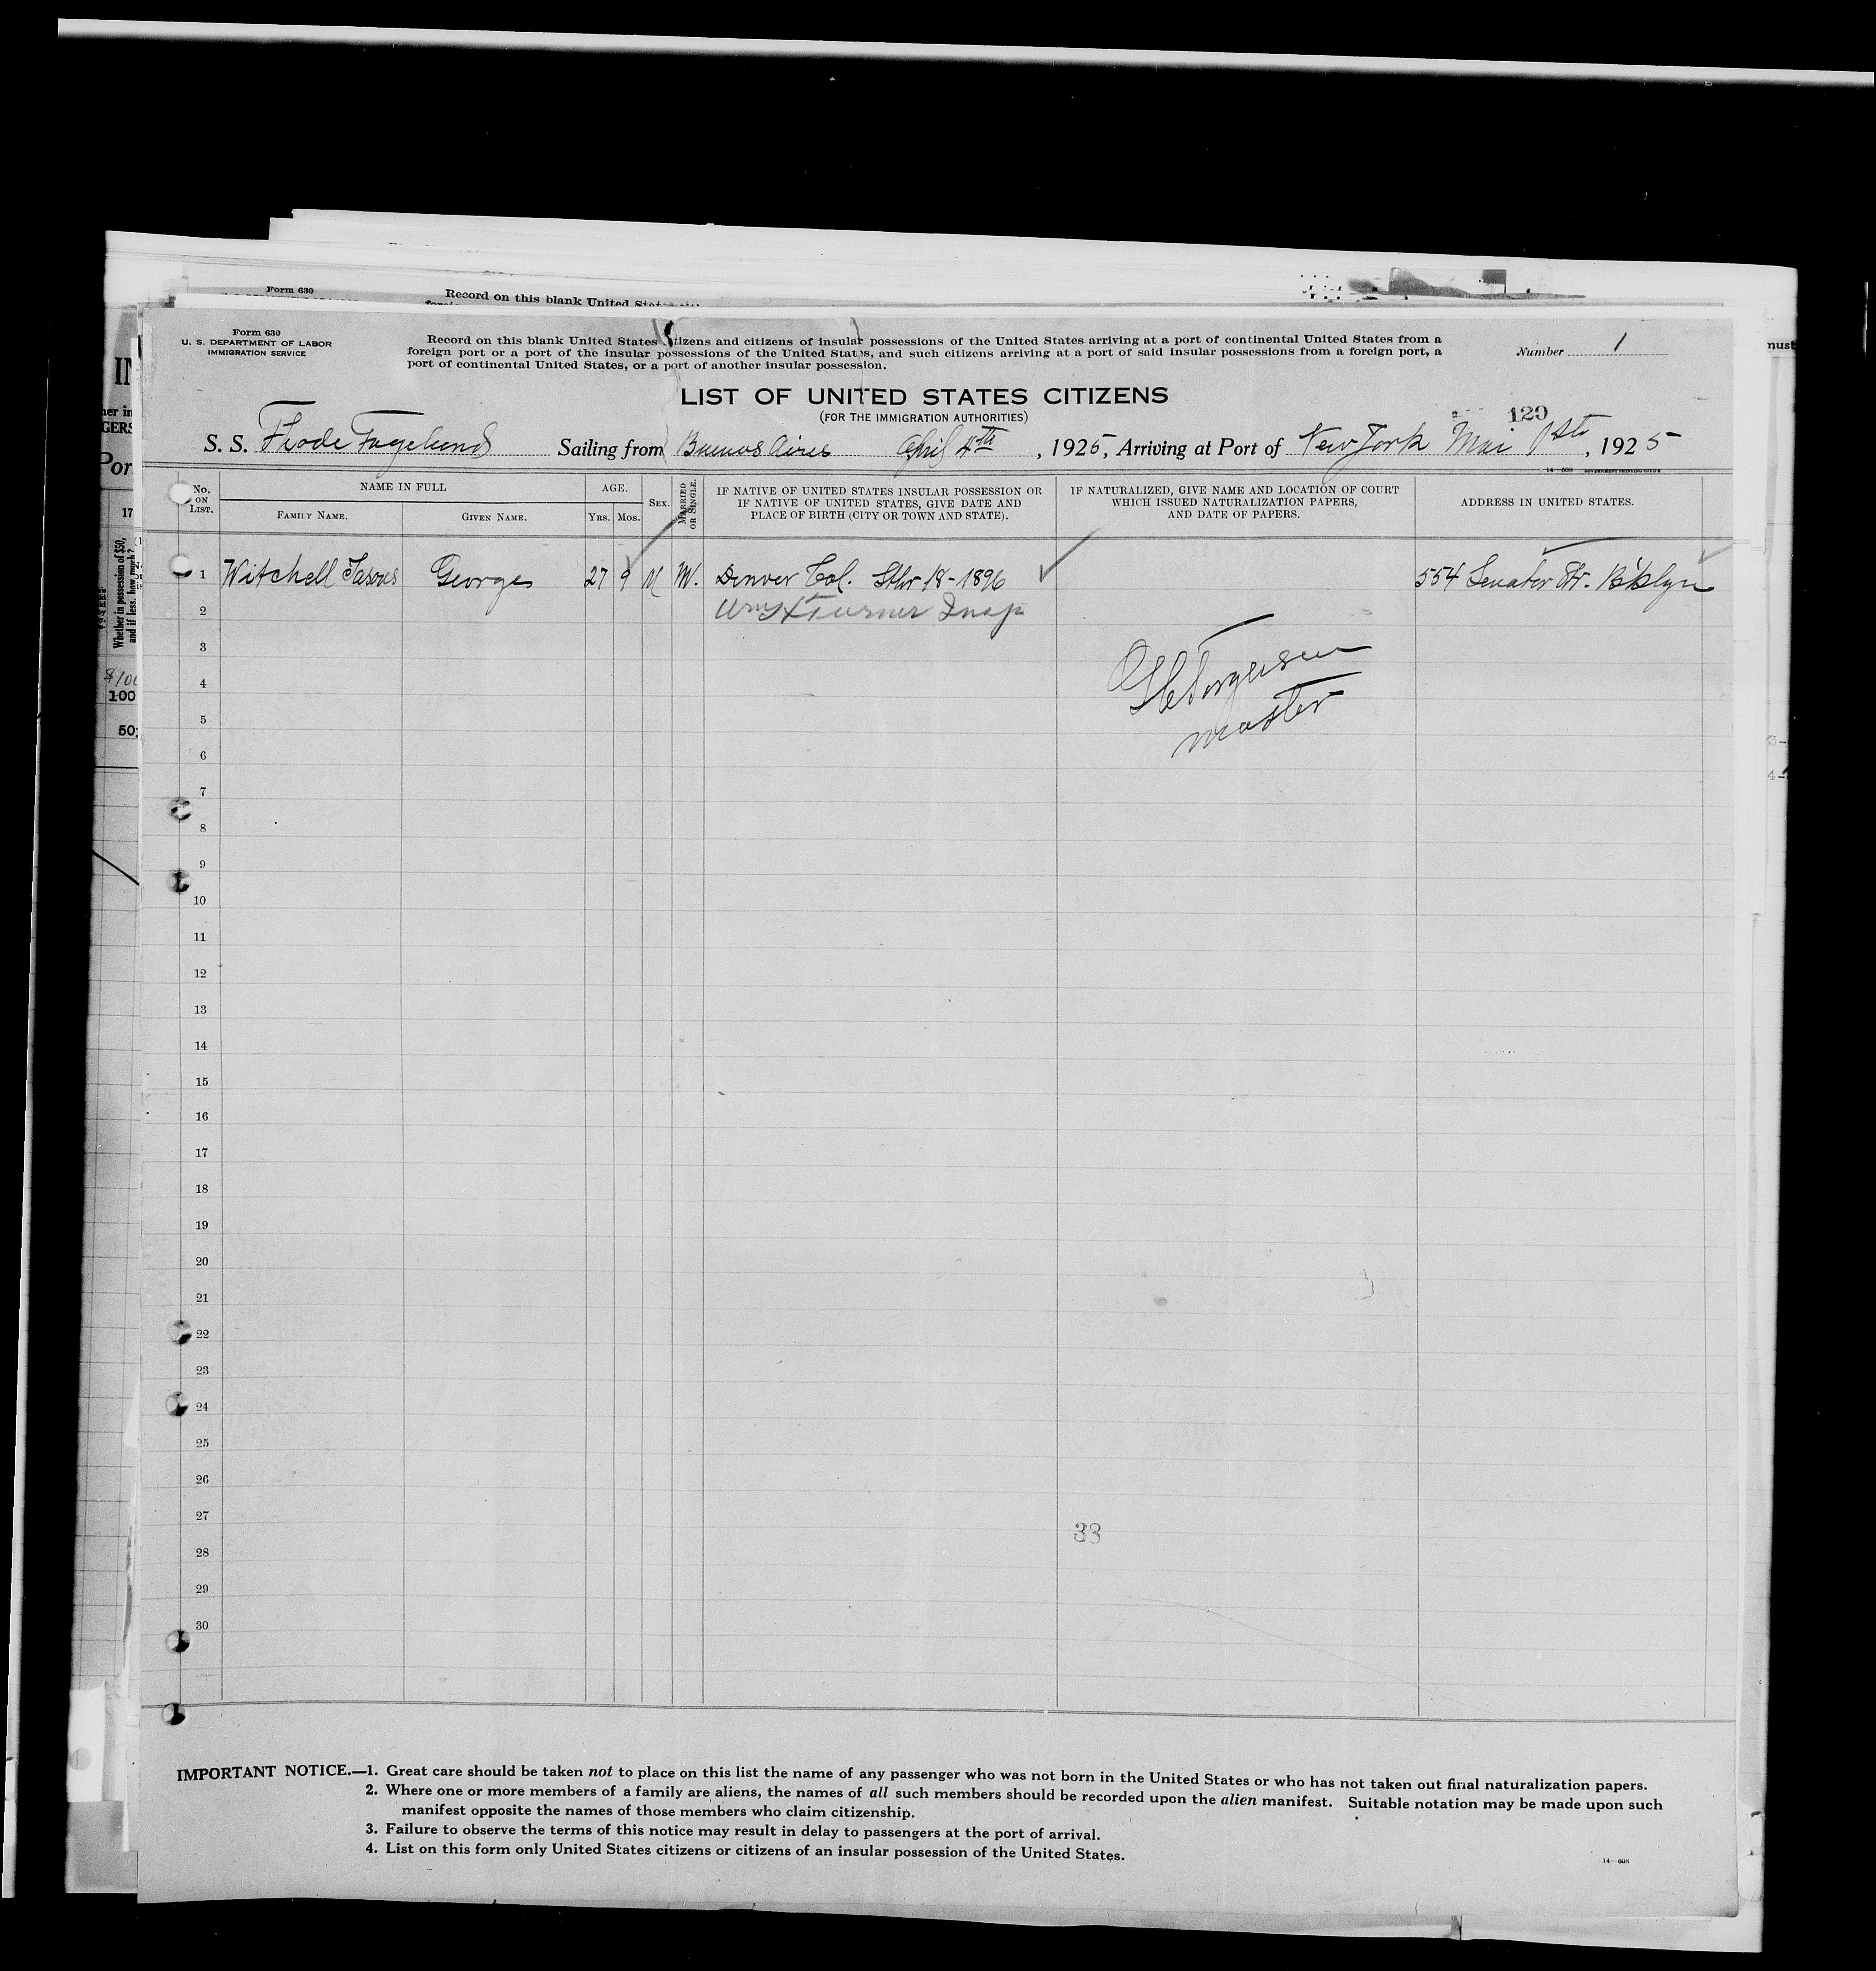 Form 630
Record on this blank United
Form 630
U. S. DEPARTMENT OF LABOR
IMMIGRATION SERVICE
Record on this blank United States citizens and citizens of insular possessions of the United States arriving at a port of continental United States from a
foreign port or a port of the insular possessions of the United States, and such citizens arriving at a port of said insular possessions from a foreign port, a
port of continental United States, or a port of another insular possession.
Number 1
LIST OF UNITED STATES CITIZENS
(FOR THE IMMIGRATION AUTHORITIES)
129
S. S. Thode Fagelund Sailing from Buenos Aires April 4th, 1925, Arriving at Port of New York Mai 1st, 1925
No. ON LIST.
NAME IN FULL
FAMILY NAME.
GIVEN NAME.
AGE.
YRS.
MOS.
SEX.
MARRIED OR SINGLE.
IF NATIVE OF UNITED STATES INSULAR POSSESSION OR
IF NATIVE OF UNITED STATES, GIVE DATE AND
PLACE OF BIRTH (CITY OR TOWN AND STATE).
IF NATURALIZED, GIVE NAME AND LOCATION OF COURT
WHICH ISSUED NATURALIZATION PAPERS,
AND DATE OF PAPERS.
ADDRESS IN UNITED STATES.
1 Witchell George 27 9 M M. Denver Col. 18-1896 554 Senator Str. B'klyn
2 Turner Insp
3
4
master
5
6
7
8
9
10
11
12
13
14
15
16
17
18
19
20
21
22
23
24
25
26
27
33
28
29
30
IMPORTANT NOTICE.—1. Great care should be taken not to place on this list the name of any passenger who was not born in the United States or who has not taken out final naturalization papers.
2. Where one or more members of a family are aliens, the names of all such members should be recorded upon the alien manifest. Suitable notation may be made upon such
manifest opposite the names of those members who claim citizenship.
3. Failure to observe the terms of this notice may result in delay to passengers at the port of arrival.
4. List on this form only United States citizens or citizens of an insular possession of the United States.
14—608